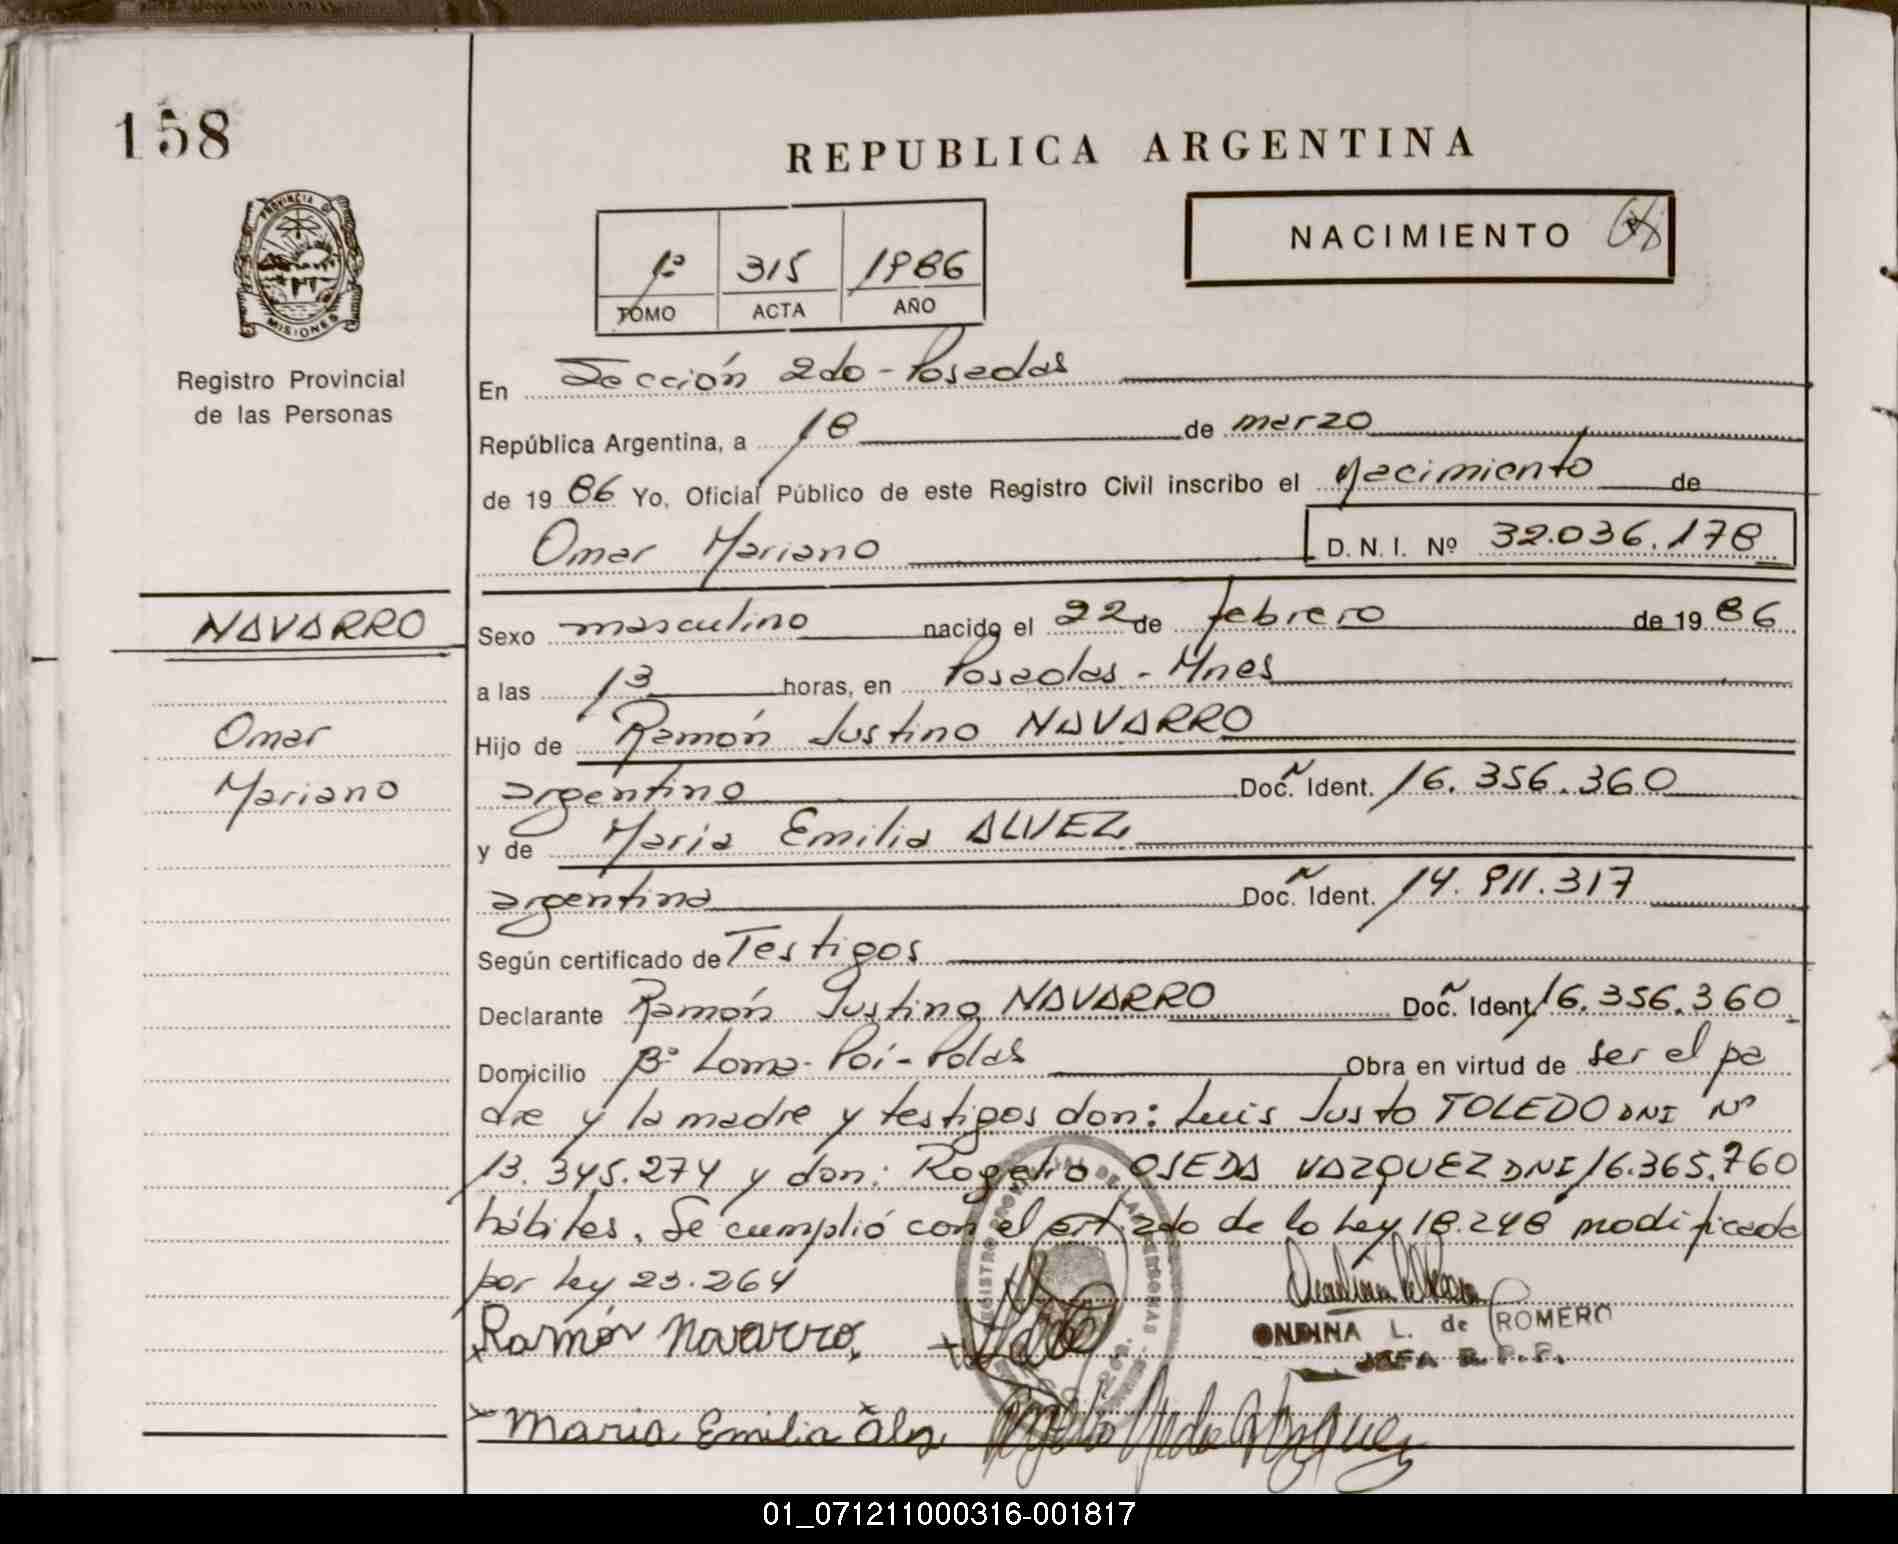 158
REPUBLICA ARGENTINA
PROVINCIA DE
MISIONES
Registro Provincial
de las Personas
1º 315 1986
TOMO ACTA AÑO
NACIMIENTO
En Sección 2do - Posadas
República Argentina, a 18 de marzo
de 1986 Yo, Oficial Público de este Registro Civil inscribo el Nacimiento de
Omar Mariano D. N. I. Nº 32.036.178
NAVARRO
Omar
Mariano
Sexo masculino nacido el 22 de febrero de 1986
a las 13 horas, en Posadas - Mnes
Hijo de Ramón Justino NAVARRO
argentino Doc. Ident. 16.356.360
y de María Emilia ALVEZ
argentina Doc. Ident. 14.911.317
Según certificado de Testigos
Declarante Ramón Justino NAVARRO Doc. Ident. 16.356.360
Domicilio Bº Loma-Poí-Pdas Obra en virtud de ser el pa
dre y la madre y testigos don: Luis Justo TOLEDO DNI Nº
13.345.274 y don: Rogelio OJEDA VAZQUEZ DNI 16.365.760
hábiles. Se cumplió con el art. 2do de la Ley 18.248 modificada
por ley 23.264
Ramón Navarro
ONDINA L. de ROMERO
JEFA R. P. P.
Maria Emilia
01_071211000316-001817